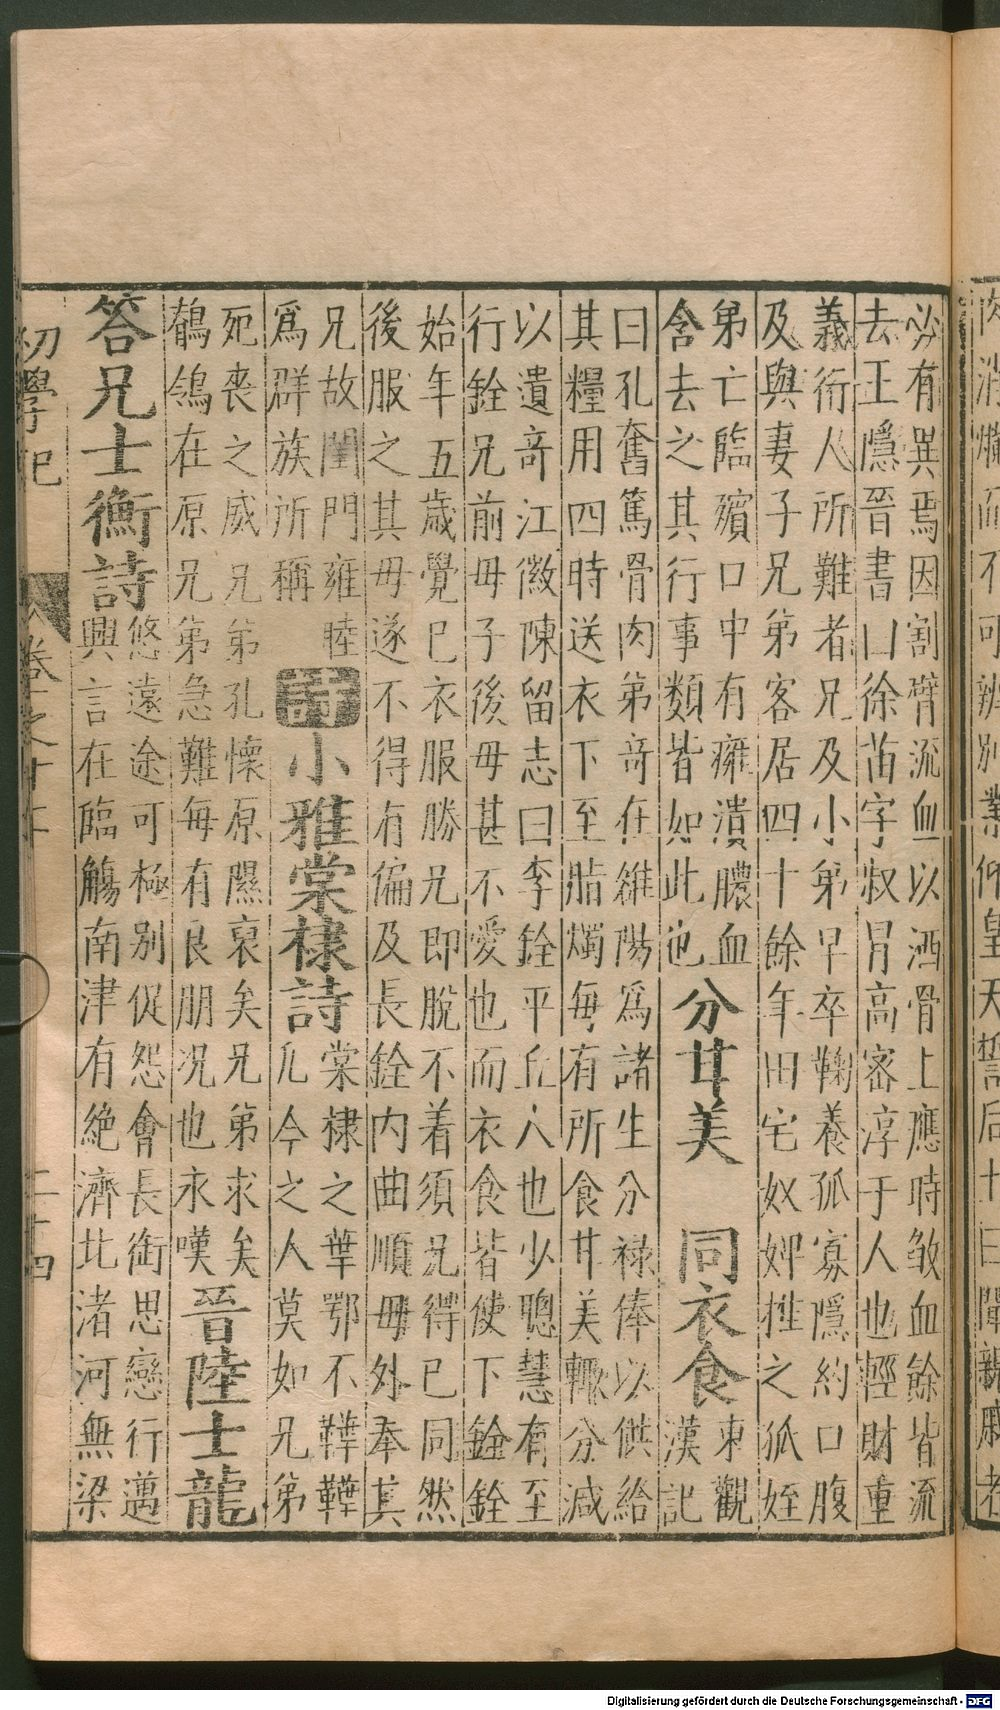 肉消爛而不可辨別業仰皇天誓后土曰
必有異焉因割臂流血以洒骨上應時歃血餘皆流
去王隱晉書曰徐苗字叔胄高密淳于人也輕財重
義行人所難者兄及小弟早卒鞠養孤寡隱約口腹
及與妻子兄弟客居四十餘年田宅奴婢推之孤姪
弟亡臨殯口中有癰潰膿血
含去之其行事類皆如此也
分甘美 同衣食
東觀
漢記
曰孔奮篤骨肉弟奇在雒陽爲諸生分禄俸以供給
其糧用四時送衣下至脂燭每有所食甘美輒分減
以遺奇江微陳留志曰李銓平丘人也少聰慧有至
行銓兄前母子後母甚不愛也而衣食皆使下銓銓
始年五歲覺已衣服勝兄即脫不着須兄得已同然
後服之其母遂不得有偏及長銓内曲順母外奉其
兄故閨門雍睦
爲群族所稱
詩
小雅棠棣詩
棠棣之華鄂不韡韡
凡今之人莫如兄弟
死喪之威兄弟孔懷原隰裒矣兄弟求矣
鶺鴒在原兄弟急難每有良朋况也永嘆
晉陸士龍
答兄士衡詩
悠遠途可極別促怨會長銜思戀行邁
興言在臨觴南津有絶濟北渚河無梁
初學記
卷之十七
二十四
Digitalisierung gefördert durch die Deutsche Forschungsgemeinschaft - DFG